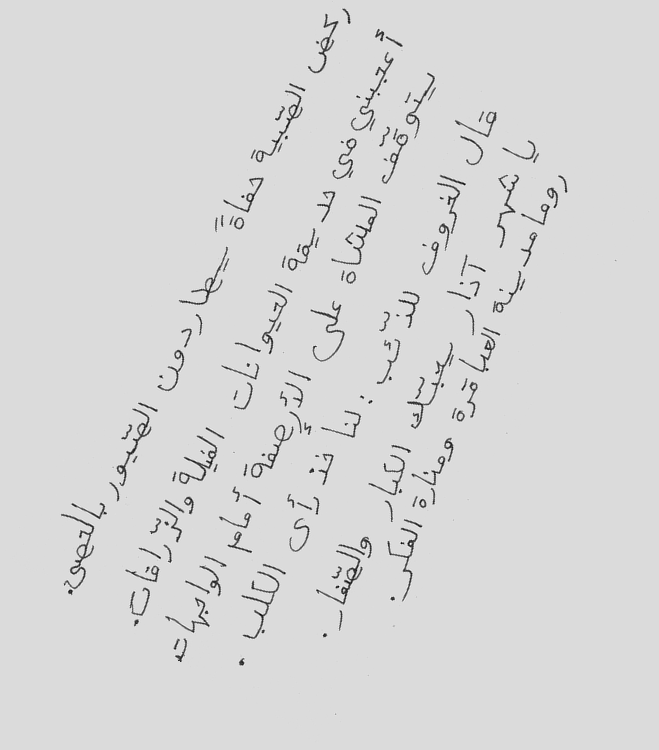 ركض الصّبية حفاة يطاردون الطّيور بالحصى.
أعجبني في حديقة الحيوانات الفيلة والزّرافات.
يتوقّف المشاة على الأرصفة أمام الواجهات
قال الخروف للذّئب: لنأخذ رأي الكلب.
يا شهر آذار يحبّك الكبار والصّغار.
روما مدينة العباقرة ومنارة الفكر.